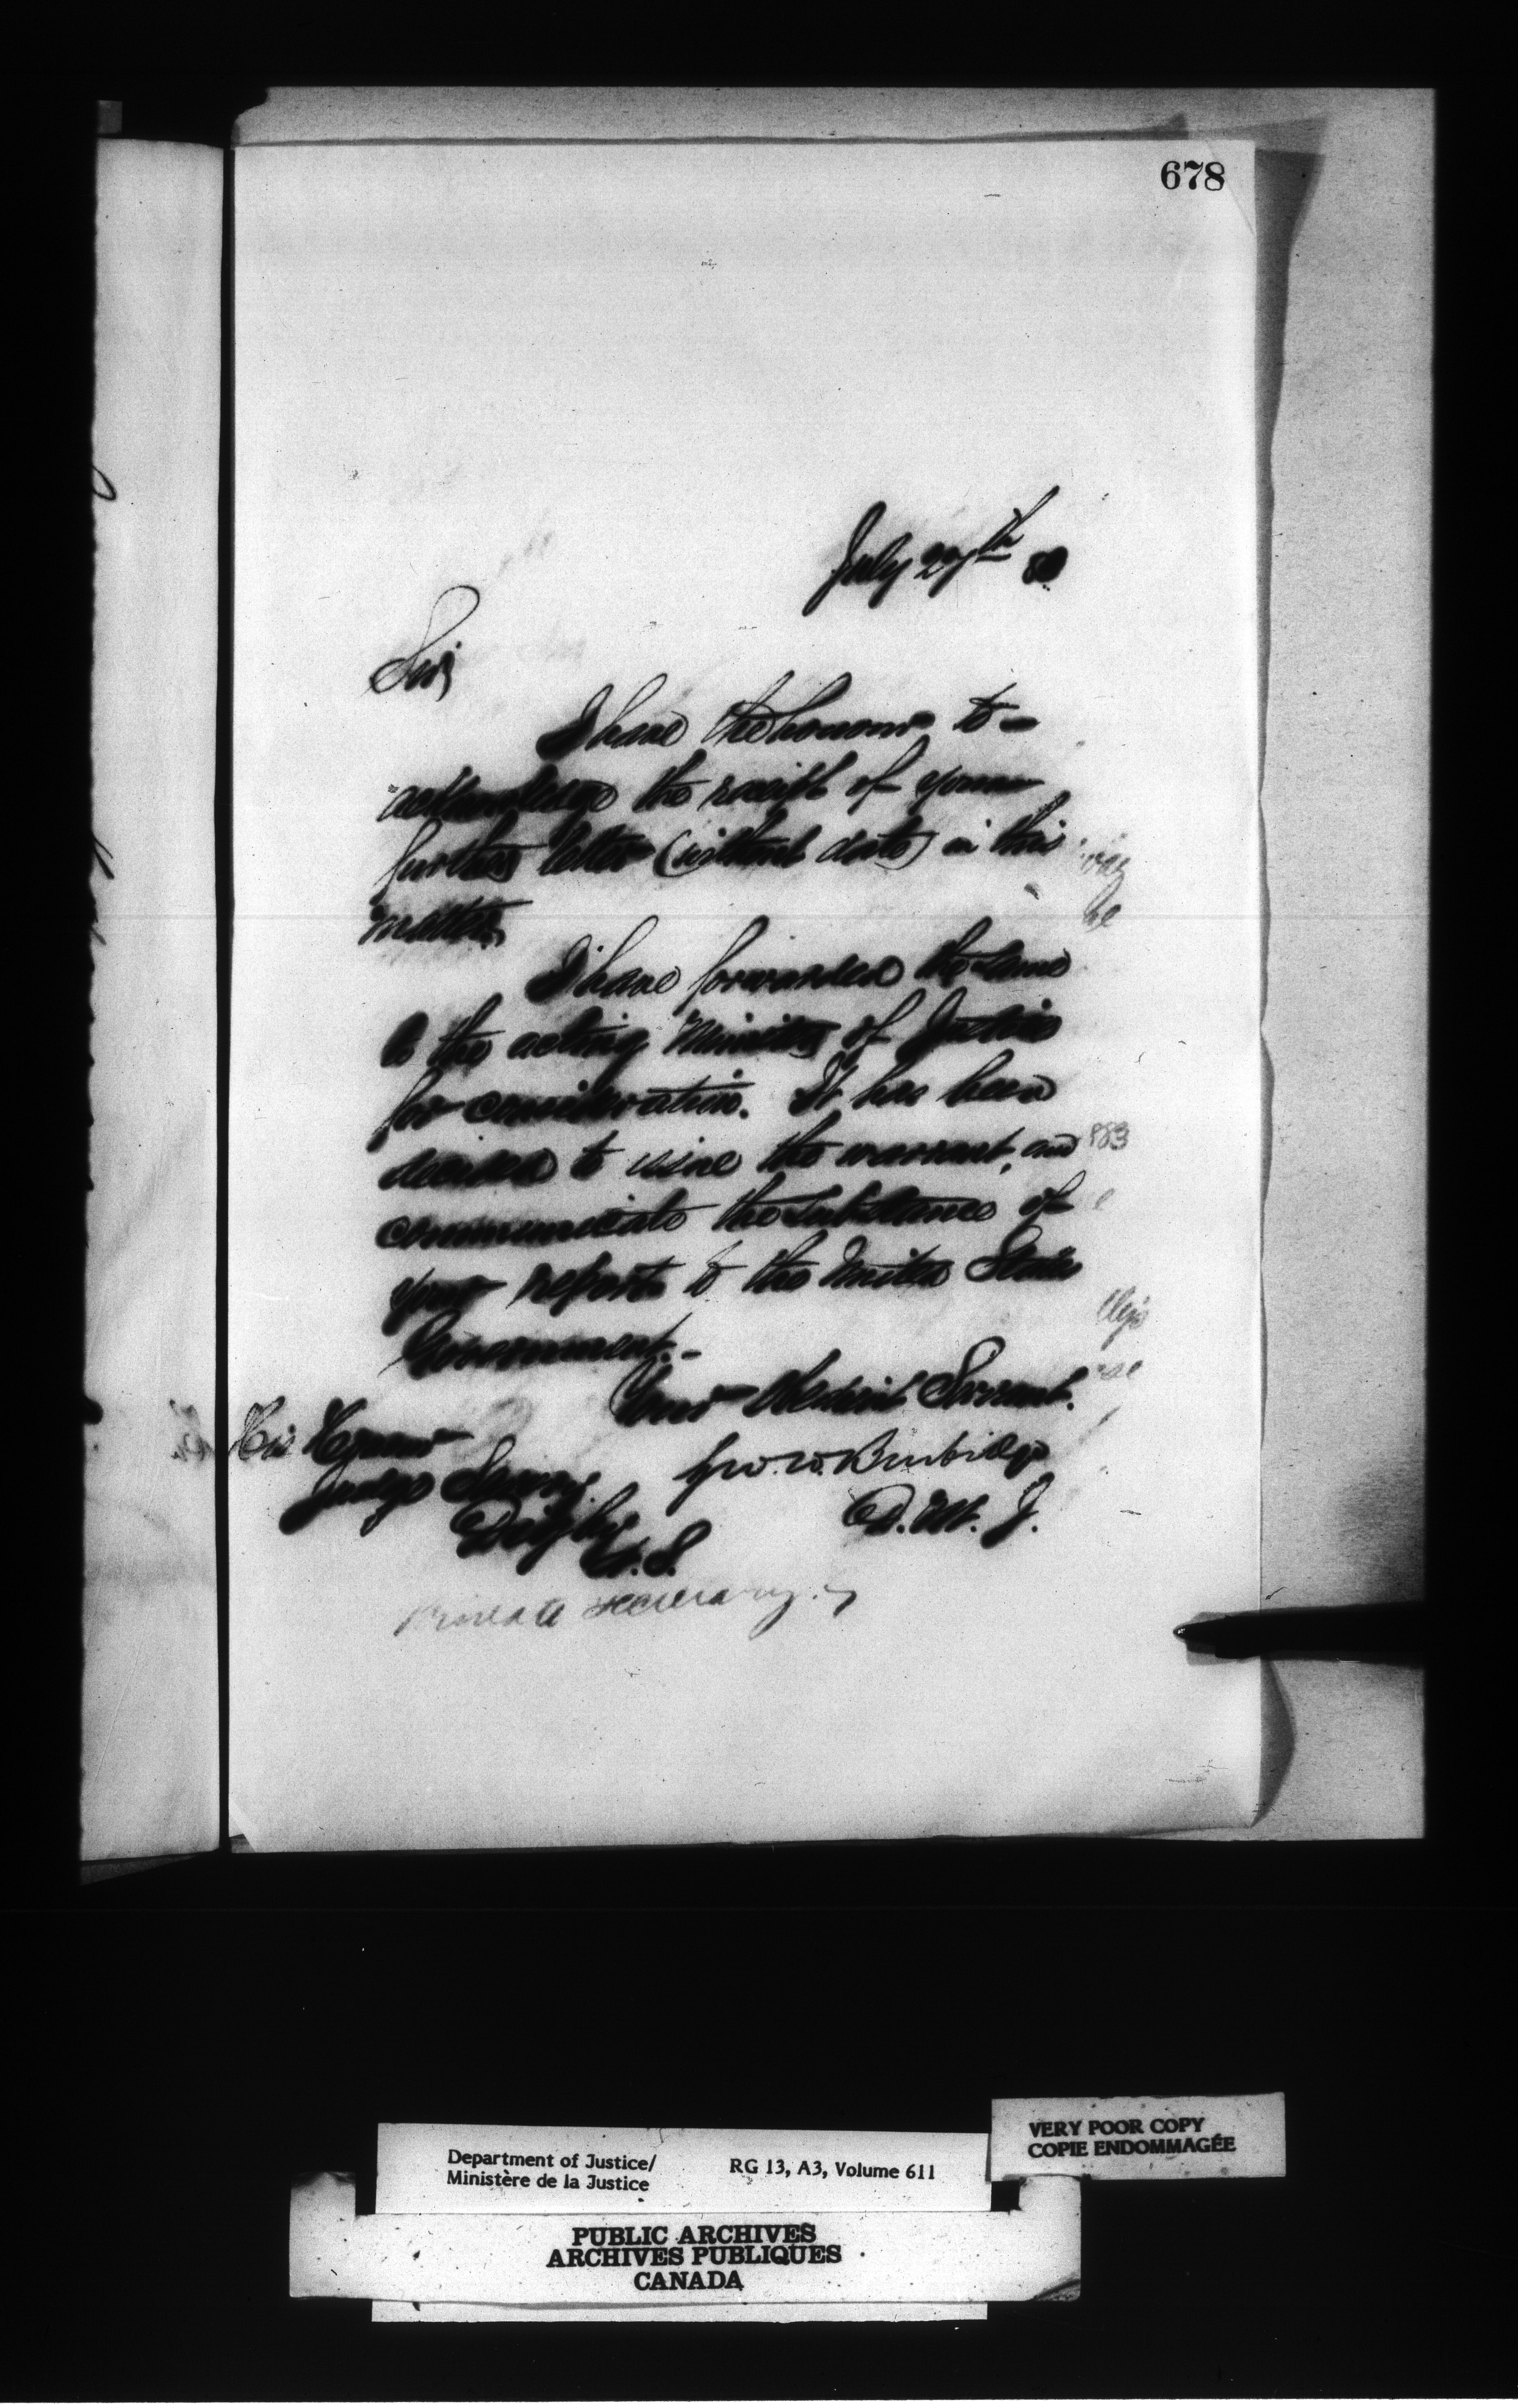 678
July 27th
Sir,
I have the honour to
acknowledge the receipt of your
further letter (without date) in this
matter.
I have forwarded the same
to the acting Minister of Justice
for consideration. It has been
decided to issue the warrant, and
communicate the substance of
your report to the United States
Government.-
Your Obedient Servant.
His Honour
Geo. W. Burbidge
Judge Savary
D. M. J.
Digby
N. S.
Private Secretary.
Department of Justice/
Ministère de la Justice
RG 13, A3, Volume 611
VERY POOR COPY
COPIE ENDOMMAGÉE
PUBLIC ARCHIVES
ARCHIVES PUBLIQUES
CANADA